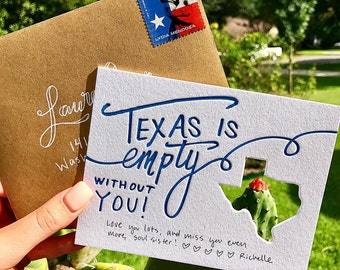 LYDIA MENDOZA
TEXAS IS
empty
WITHOUT
YOU!
Love you lots, and miss you even
more, soul sister! ♡ ♡ ♡ ♡ ♡
Richelle